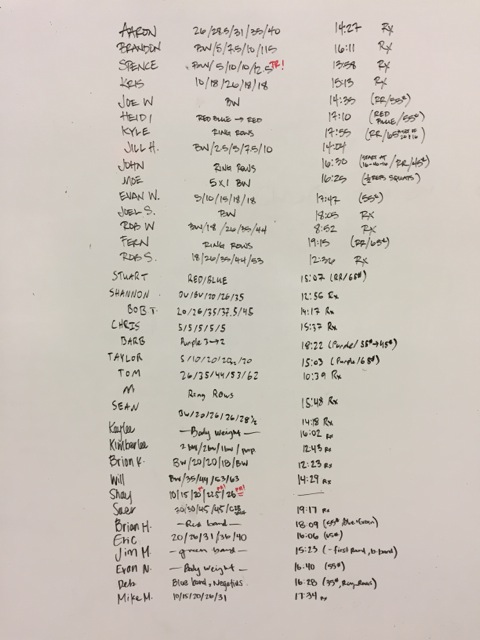 AARON 26/28.5/31/35/40 14:27 Rx
BRANDON BW/5/7.5/10/11.5 16:11 Rx
SPENCE BW/5/10/10/12.5 PR! 13:58 Rx
KRIS 10/18/26/18/18 15:13 Rx
JOE W BW 14:35 (RR/55#)
HEIDI RED BLUE → RED 17:10 (RED BLUE/55#)
KYLE RING ROWS 17:55
JILL H. BW/2.5/5/7.5/10 14:04
JOHN RING ROWS 16:30
MOE 5x1 BW 16:25
EVAN W. 5/10/15/18/18 17:47 (55#)
JOEL S. BW 18:05 Rx
ROB W BW/18/26/35/44 8:52 Rx
FERN RING ROWS 19:15 (RR/65#)
ROB S. 18/26/35/44/53 12:36 Rx
STUART RED/BLUE 15:07 (RR/65#)
SHANNON BW/BW/20/26/35 12:56 Rx
BOB T. 20/26/35/37.5/45 14:17 Rx
CHRIS 5/5/5/5/5 15:37 Rx
BARB Purple 3→2 18:22 (Purple/35#→45#)
TAYLOR 5/10/20/20/20 15:03 (Purple/65#)
TOM 26/35/44/53/62 10:39 Rx
M Ring Rows
SEAN BW/20/26/26/28½ 15:48 Rx
Kaylee — Body weight — 14:18 Rx
Kimberlee 16:02 Rx
Brian K. BW/20/20/18/BW 12:43 Rx
Will BW/35/44/53/63 12:23 Rx
Shay 10/15/20/22.5/26 14:29 Rx
20/30/45/45 19:17 Rx
Brian H. — Red band — 18:09
Eric 20/26/31/36/40 16:06 (65#)
Jim M. — green band — 15:23
Evan N. — Body weight — 16:40 (55#)
Deb Blue band, Negatives 16:28 (35#, Ring Rows)
Mike M. 10/15/20/26/31 17:34 Rx